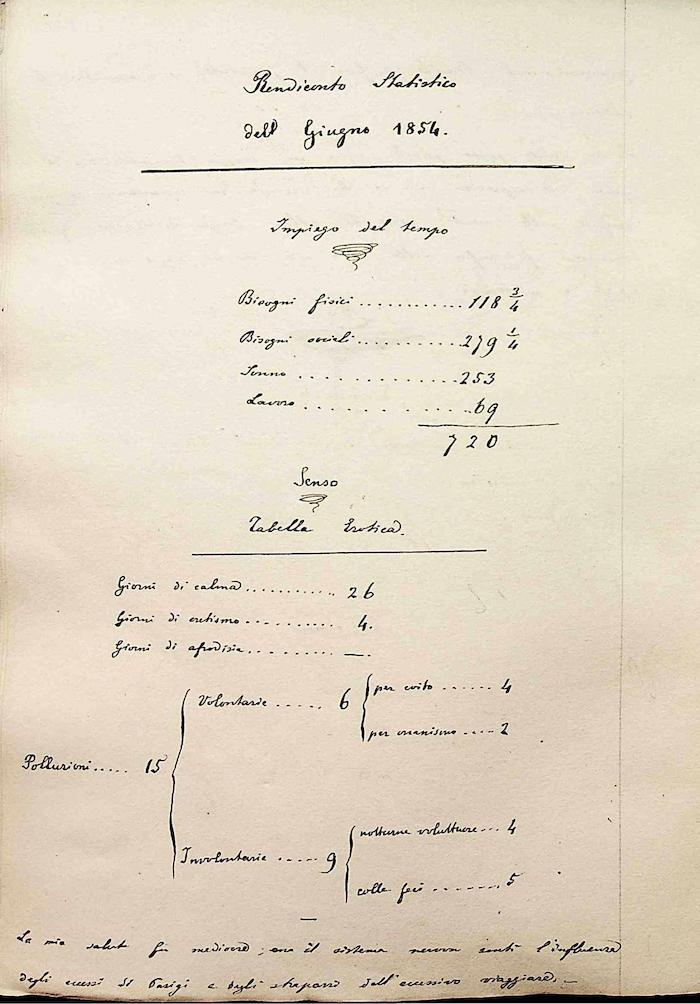 Rendiconto Statistico
dell Giugno 1854.
Impiego del tempo
Bisogni fisici ............ 118 3/4
Bisogni sociali ............ 279 1/4
Sonno ............ 253
Lavoro ............ 69
720
Senso
Tabella Erotica.
Giorni di calma ............ 26
Giorni di eretismo ............ 4.
Giorni di afrodisia ............ —.
Volontarie ..... 6 { per coito ...... 4
per onanismo .... 2
Polluzioni ..... 15
Involontarie ..... 9 { notturne voluttuose ... 4
colle feci ....... 5
La mia salute fu mediocre; ora il sistema nervoso sentì l'influenza
degli eccessi di Parigi e degli strapazzi dell'eccessivo viaggiare. —